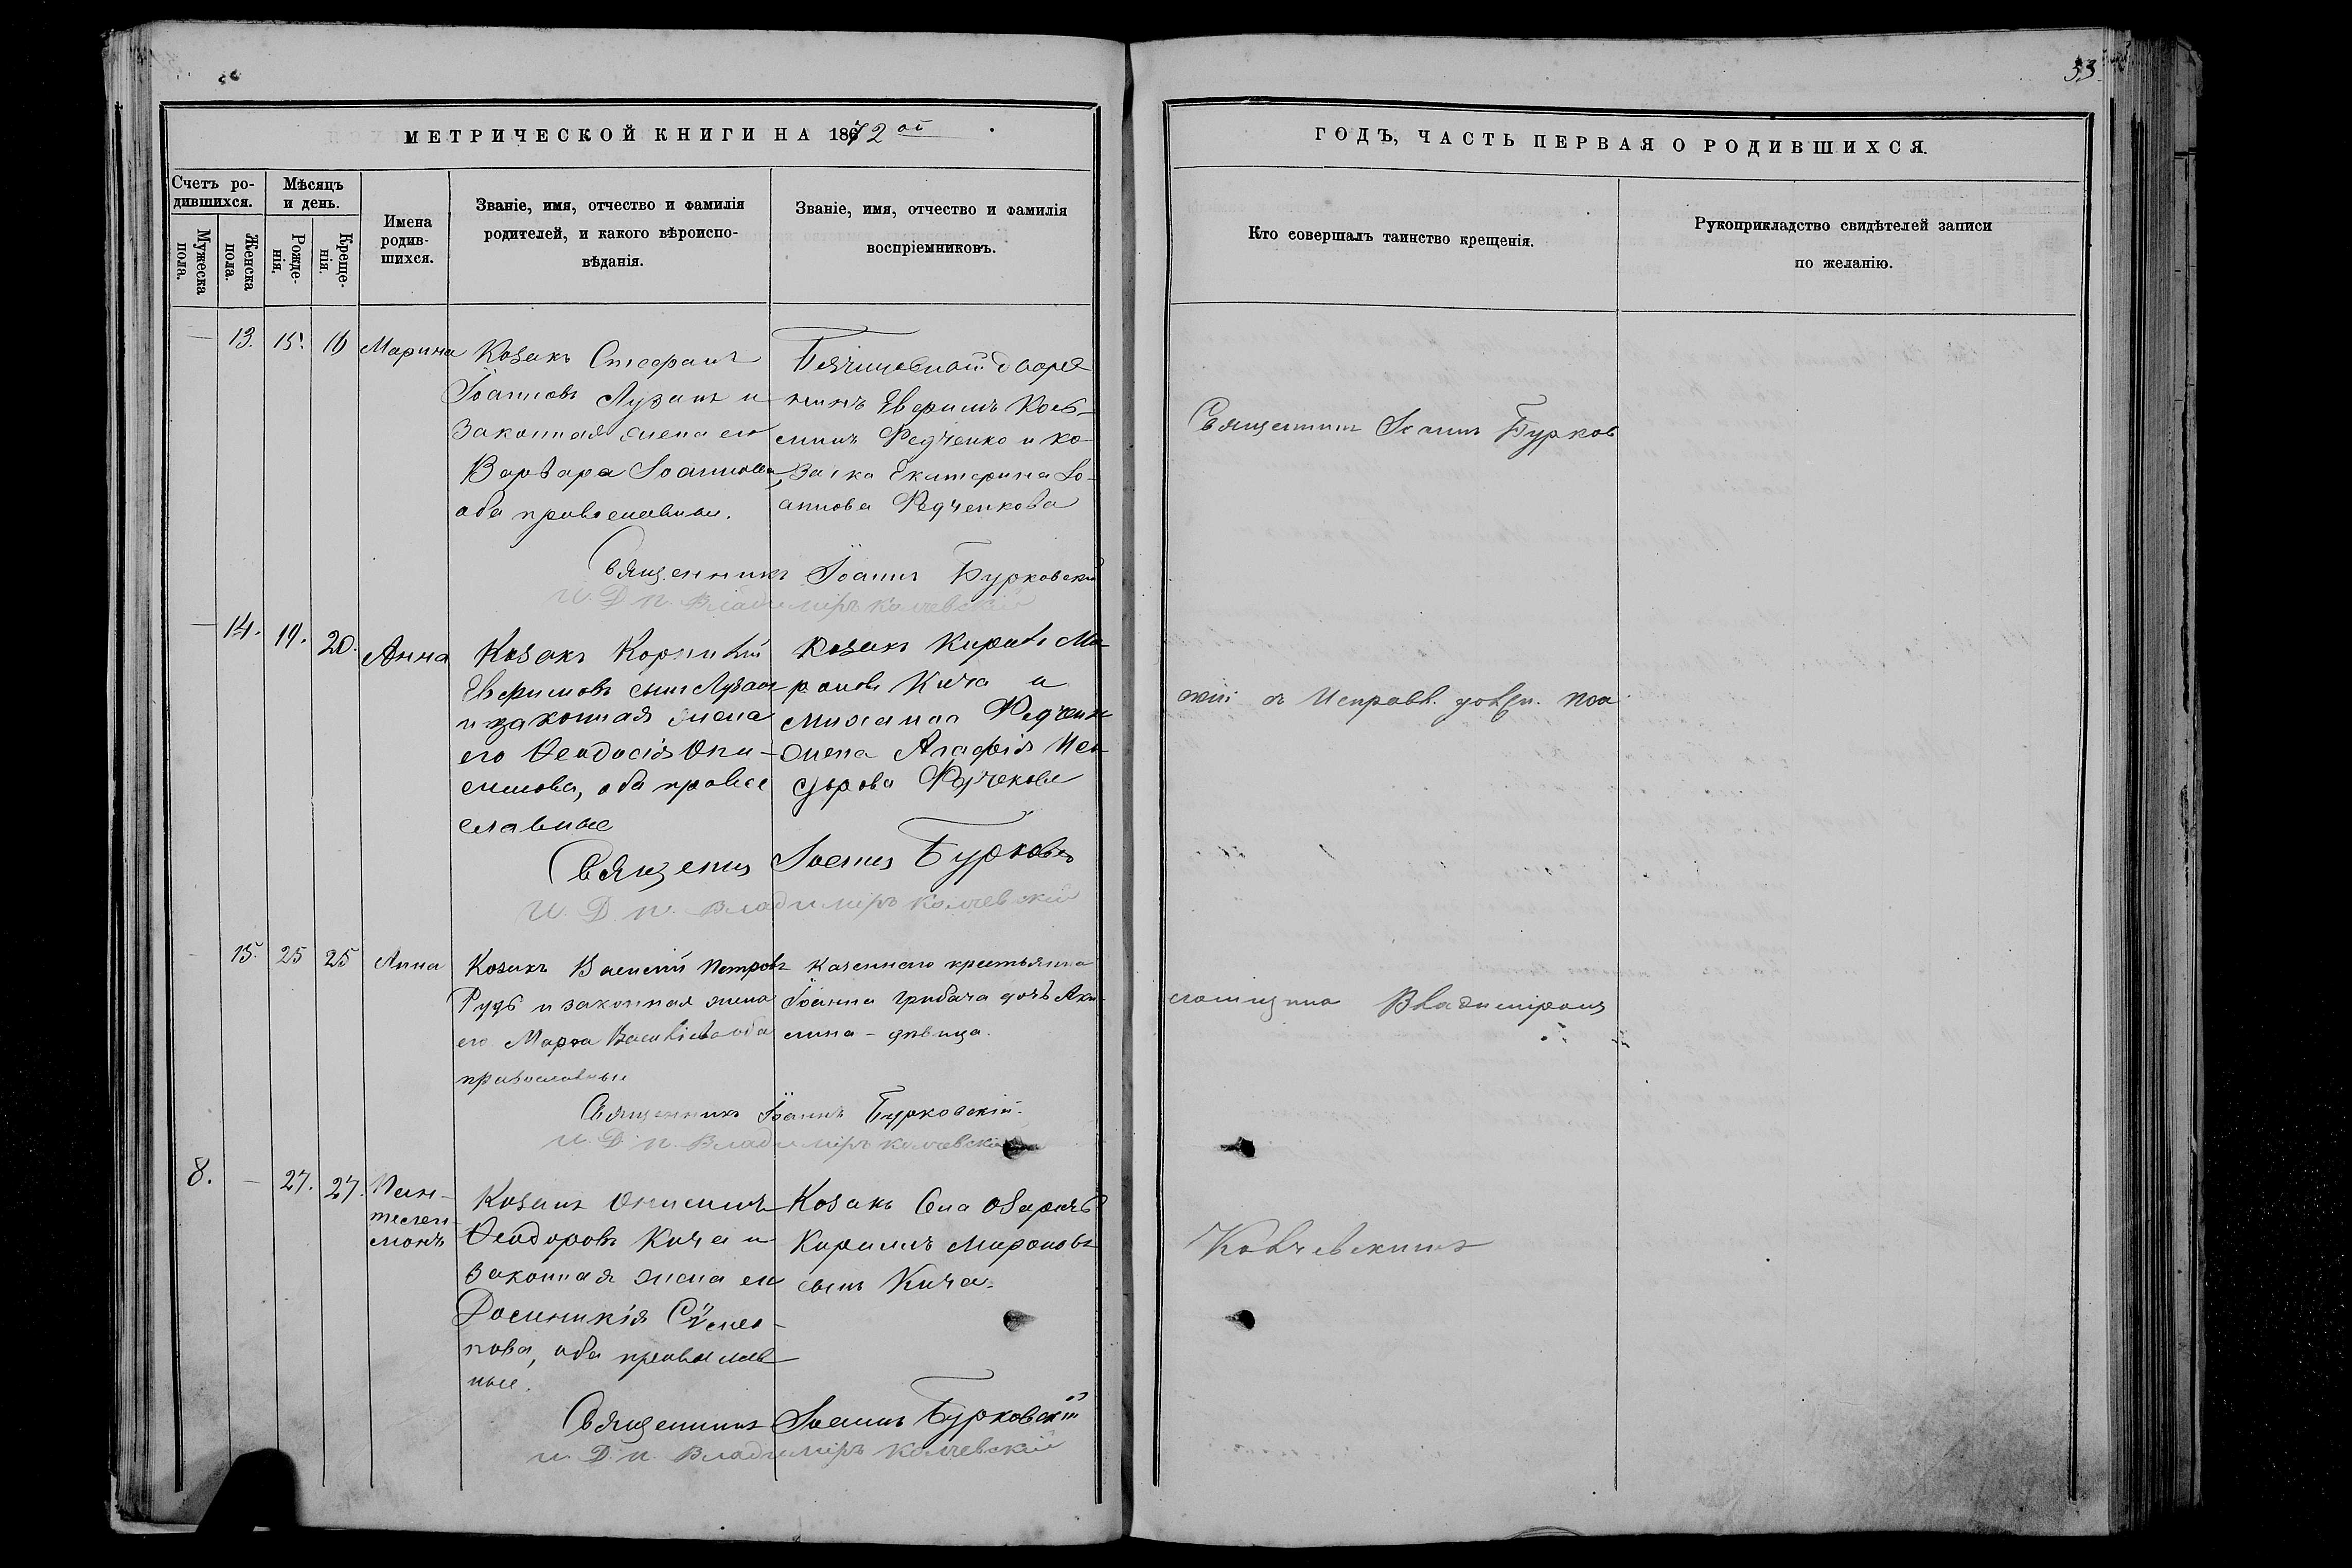 33
МЕТРИЧЕСКОЙ КНИГИ НА 1872 ой
Счетъ ро-
дившихся.
Мѣсяцъ
и день.
Мужеска
пола.
Женска
пола.
Рожде-
нія.
Креще-
нія.
Имена
родив-
шихся.
Званіе, имя, отчество и фамилія
родителей, и какого вѣроиспо-
вѣданія.
Званіе, имя, отчество и фамилія
воспріемниковъ.
13. 15. 16 Марина
Козакъ Стефанъ
Іоанновъ Лузанъ и
законная жена его
Варвара Іоаннова
оба православные.
дворя
нинъ Евфимъ Козь-
минъ Федченко и ко-
зачка Екатерина Іо-
аннова Федченкова
Священникъ Іоаннъ Бурковскій
И. Д. п. Владиміръ
14. 19. 20. Анна
Козакъ Корнилій
Евфимовъ сынъ Лузанъ
и законная жена
его Ѳеодосія Они-
симова, оба право
славные
Козакъ Кирилъ Ми-
роновъ Кича и
Михаила Федченк
жена Агафія Иси-
дорова
Священникъ Іоаннъ Бурковск
И. Д. п. Владиміръ
15. 25 25 Анна
Козакъ Василій Петровъ
Рудь и законная жена
его Марѳа Васильева оба
православные
Казеннаго крестьянина
Іоанна Грибача дочь Аки-
лина - дѣвица.
Священникъ Іоаннъ Бурковскій.
И. Д. п. Владиміръ
8. 27. 27. Пан-
телей-
монъ
Козакъ Онисимъ
Ѳеодоровъ Кича и
законная жена его
Домникія Сѵмео-
нова, оба православ
ные.
Козакъ
Кириллъ Мироновъ
сынъ Кича.
Священникъ Іоаннъ Бурковскій
И. Д. п. Владиміръ
ГОДЪ, ЧАСТЬ ПЕРВАЯ О РОДИВШИХСЯ.
Кто совершалъ таинство крещенія.
Рукоприкладство свидѣтелей записи
по желанію.
Священникъ Іоаннъ Бурков
скій съ Исправл. должн. Пса
ломщика Владиміромъ